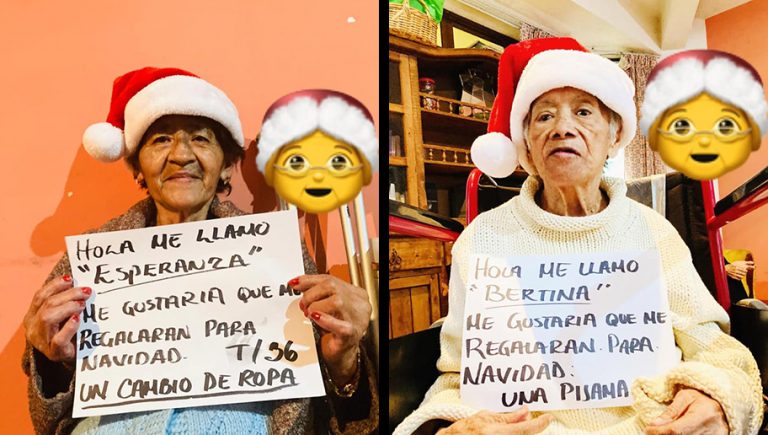 HOLA ME LLAMO
"ESPERANZA"
ME GUSTARIA QUE ME
REGALARAN PARA
NAVIDAD. T/36
UN CAMBIO DE ROPA
HOLA ME LLAMO
"BERTINA"
ME GUSTARIA QUE ME
REGALARAN. PARA.
NAVIDAD:
UNA PISAMA